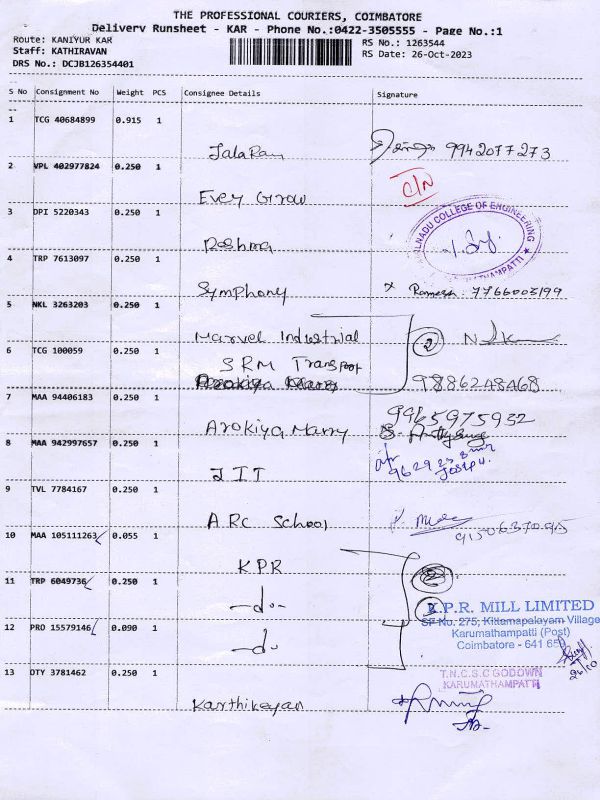 THE PROFESSIONAL COURIERS, COIMBATORE
Delivery Runsheet - KAR - Phone No.:0422-3505555 - Page No.:1
Route: KANIYUR KAR
RS No.: 1263544
Staff: KATHIRAVAN
RS Date: 26-Oct-2023
DRS No.: DCJB126354401
S No Consignment No Weight PCS Consignee Details Signature
1 TCG 40684899 0.915 1
JalaRam 9942077273
2 VPL 402977824 0.250 1
C/N
Evey Grow
3 DPI 5220343 0.250 1
COLLEGE OF ENGINEERING
Reshma
4 TRP 7613097 0.250 1
Symphony x Ramesh 7766003199
5 NKL 3263203 0.250 1
Marvel Industrial 2
6 TCG 100059 0.250 1
SRM Transport
9886248468
7 MAA 94406183 0.250 1
9965975932
Arokiya Marry
8 MAA 942997657 0.250 1
JIT
9 TVL 7784167 0.250 1
ARC School
10 MAA 105111263 0.055 1
KPR
11 TRP 6049736 0.250 1
-do-
K.P.R. MILL LIMITED
SF No. 275, Kittampalayam Village
12 PRO 15579146 0.090 1
Karumathampatti (Post)
-do-
Coimbatore - 641 659
26/10
13 OTY 3781462 0.250 1
T.N.C.S.C GODOWN
KARUMATHAMPATTI
Karthikeyan